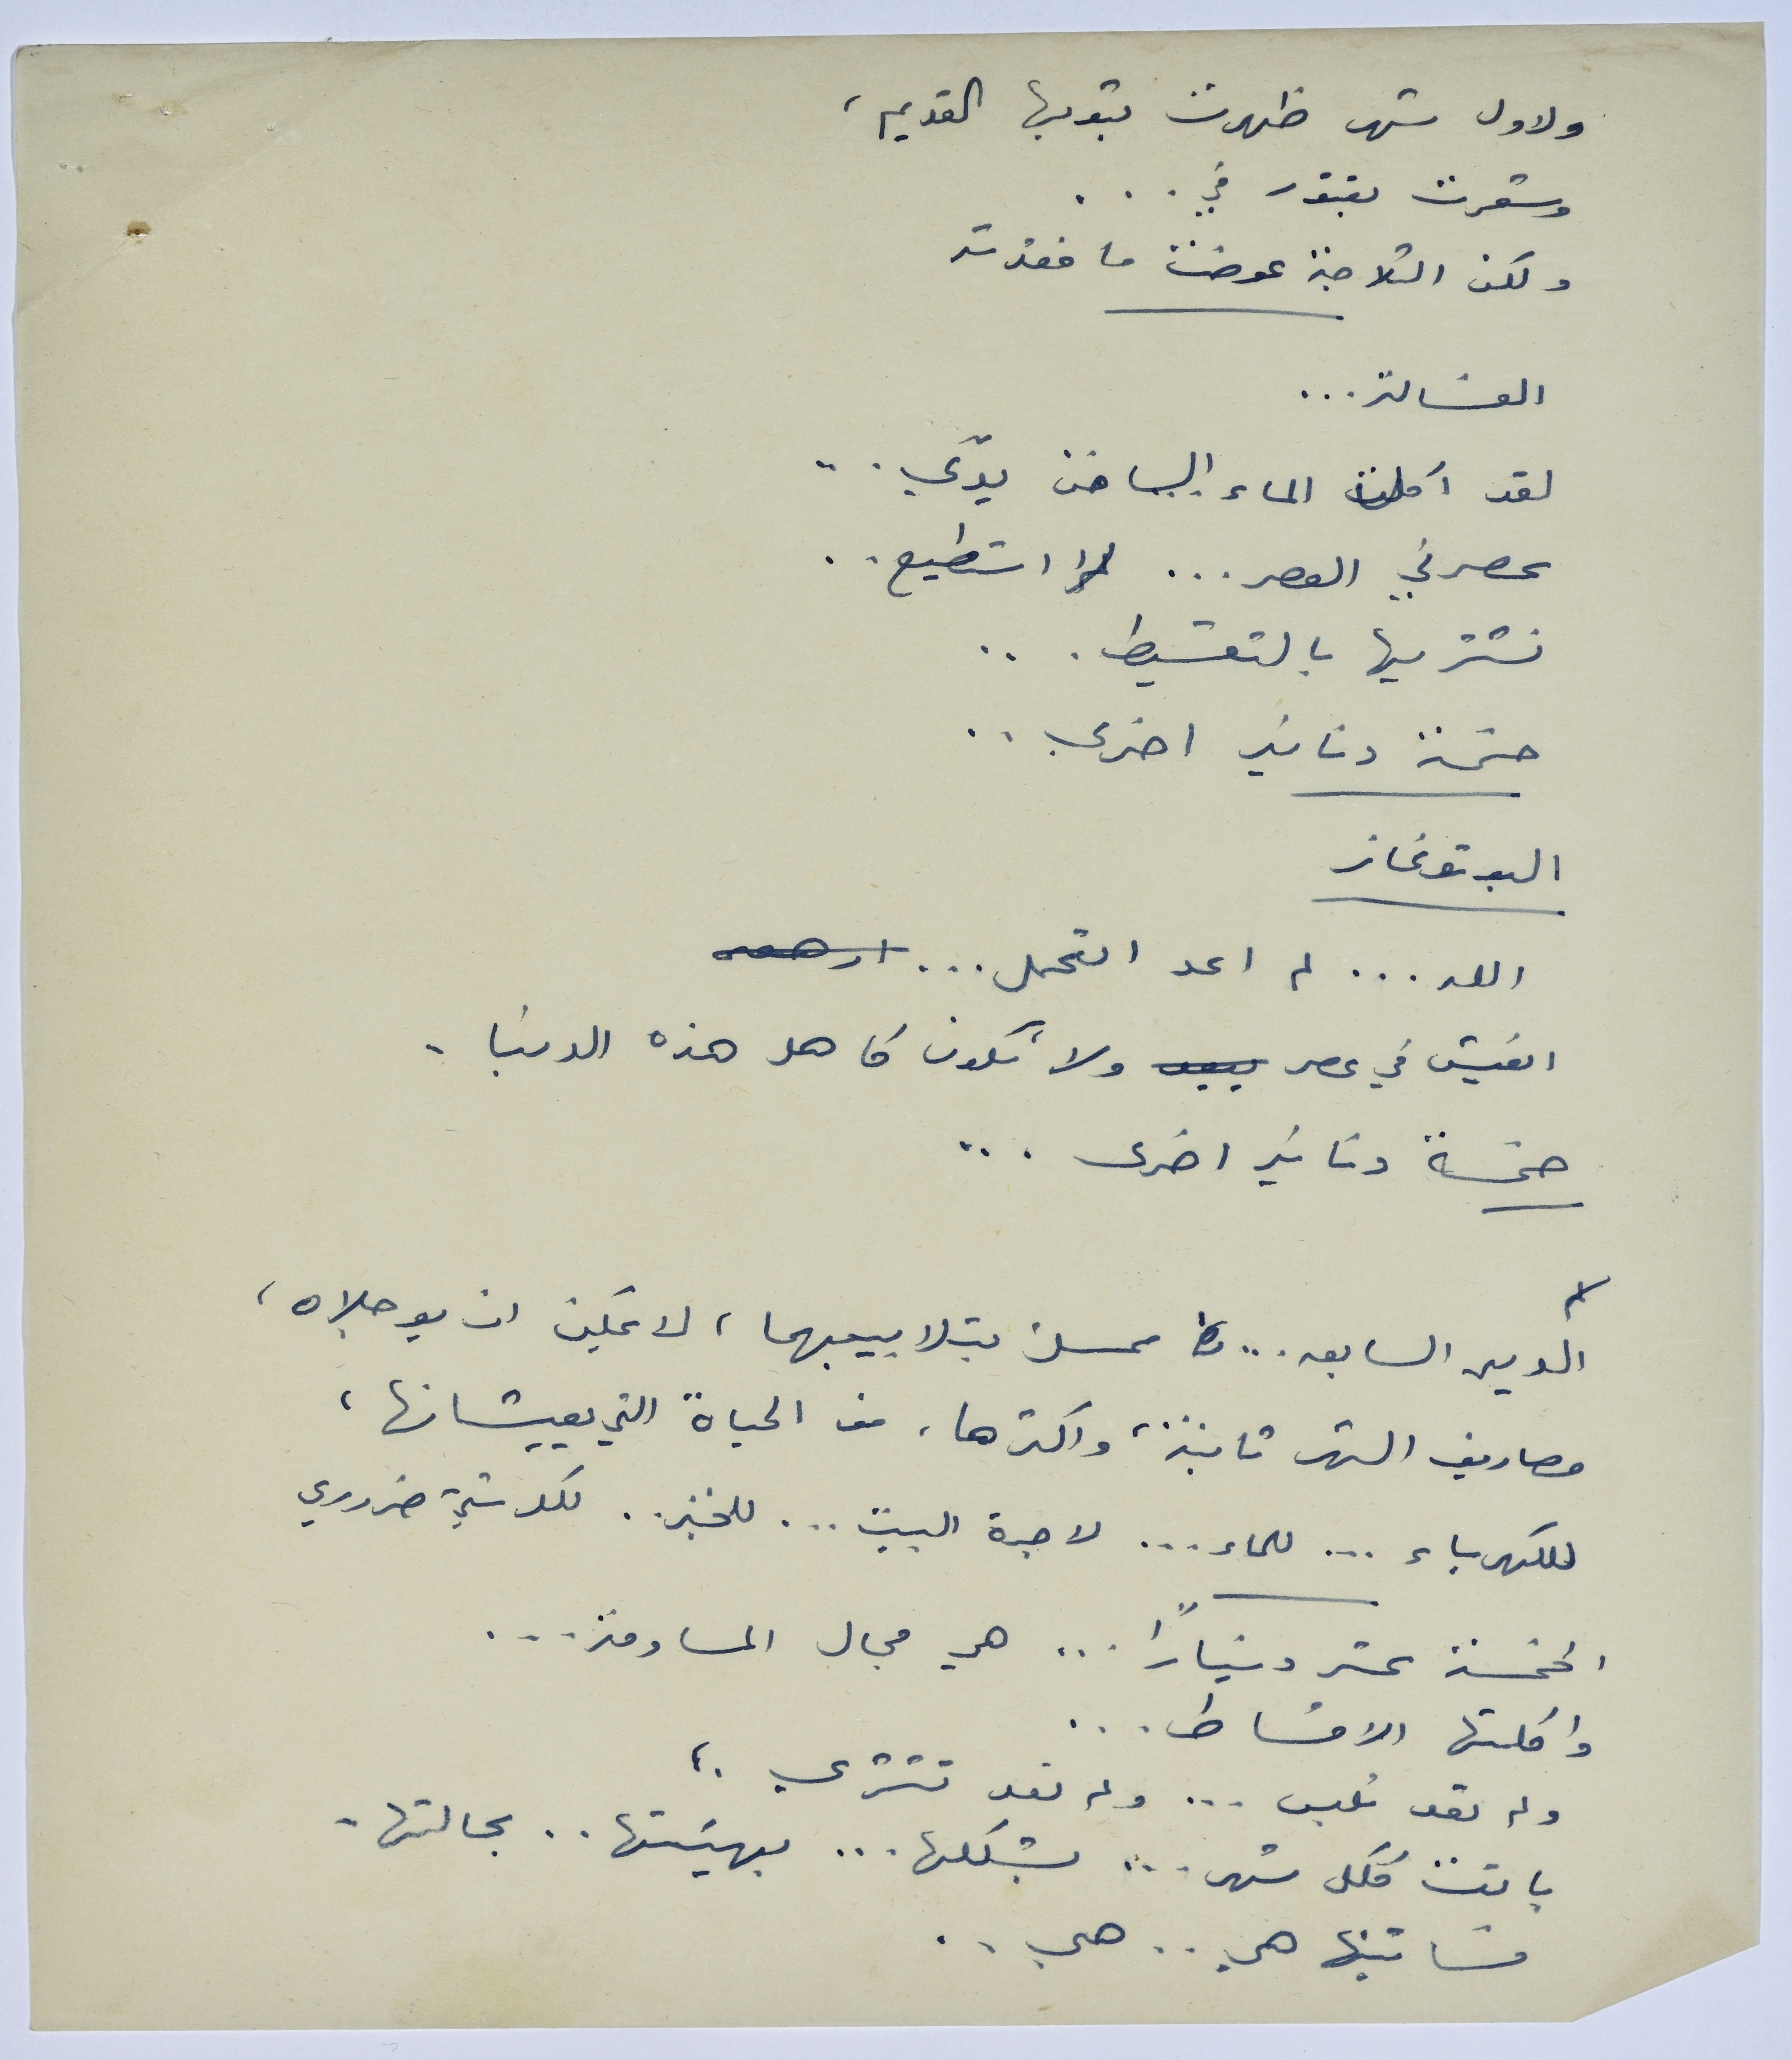 ولاول شهر ظهرت بثوبها القديم،
وشعرت بفتور في ...
ولكن الثلاجة عوضت ما فقدته
الغسالة...
لقد اكلت الماء الساخن يدّي...
عصرني العصر... لا استطيع..
نشتريها بالتقسيط...
خمسة دنانير اخرى..
البوتوغاز
الله... لم اعد اتحمل...
اتعيش في عصر ولا تكون كاهل هذه الدنيا.
خمسة دنانير اخرى...
الدين السابق... ممسك بتلابيبهما، لا يمكن ان يؤجلاه،
مصاريف الشهر ثابتة، واكثرها، من الحياة التي يعيشانها،
للكهرباء... للماء... لاجرة البيت... للخبز.. لكل شيء ضروري
الخمسة عشر ديناراً... هي مجال المساومة...
واكلتها الاقساط...
ولم تعد تلبس... ولم تعد تشتري.،
باتت ككل شهر... بشكلها... بهيئتها.. بحالتها.
فساتينها هي.. هي..